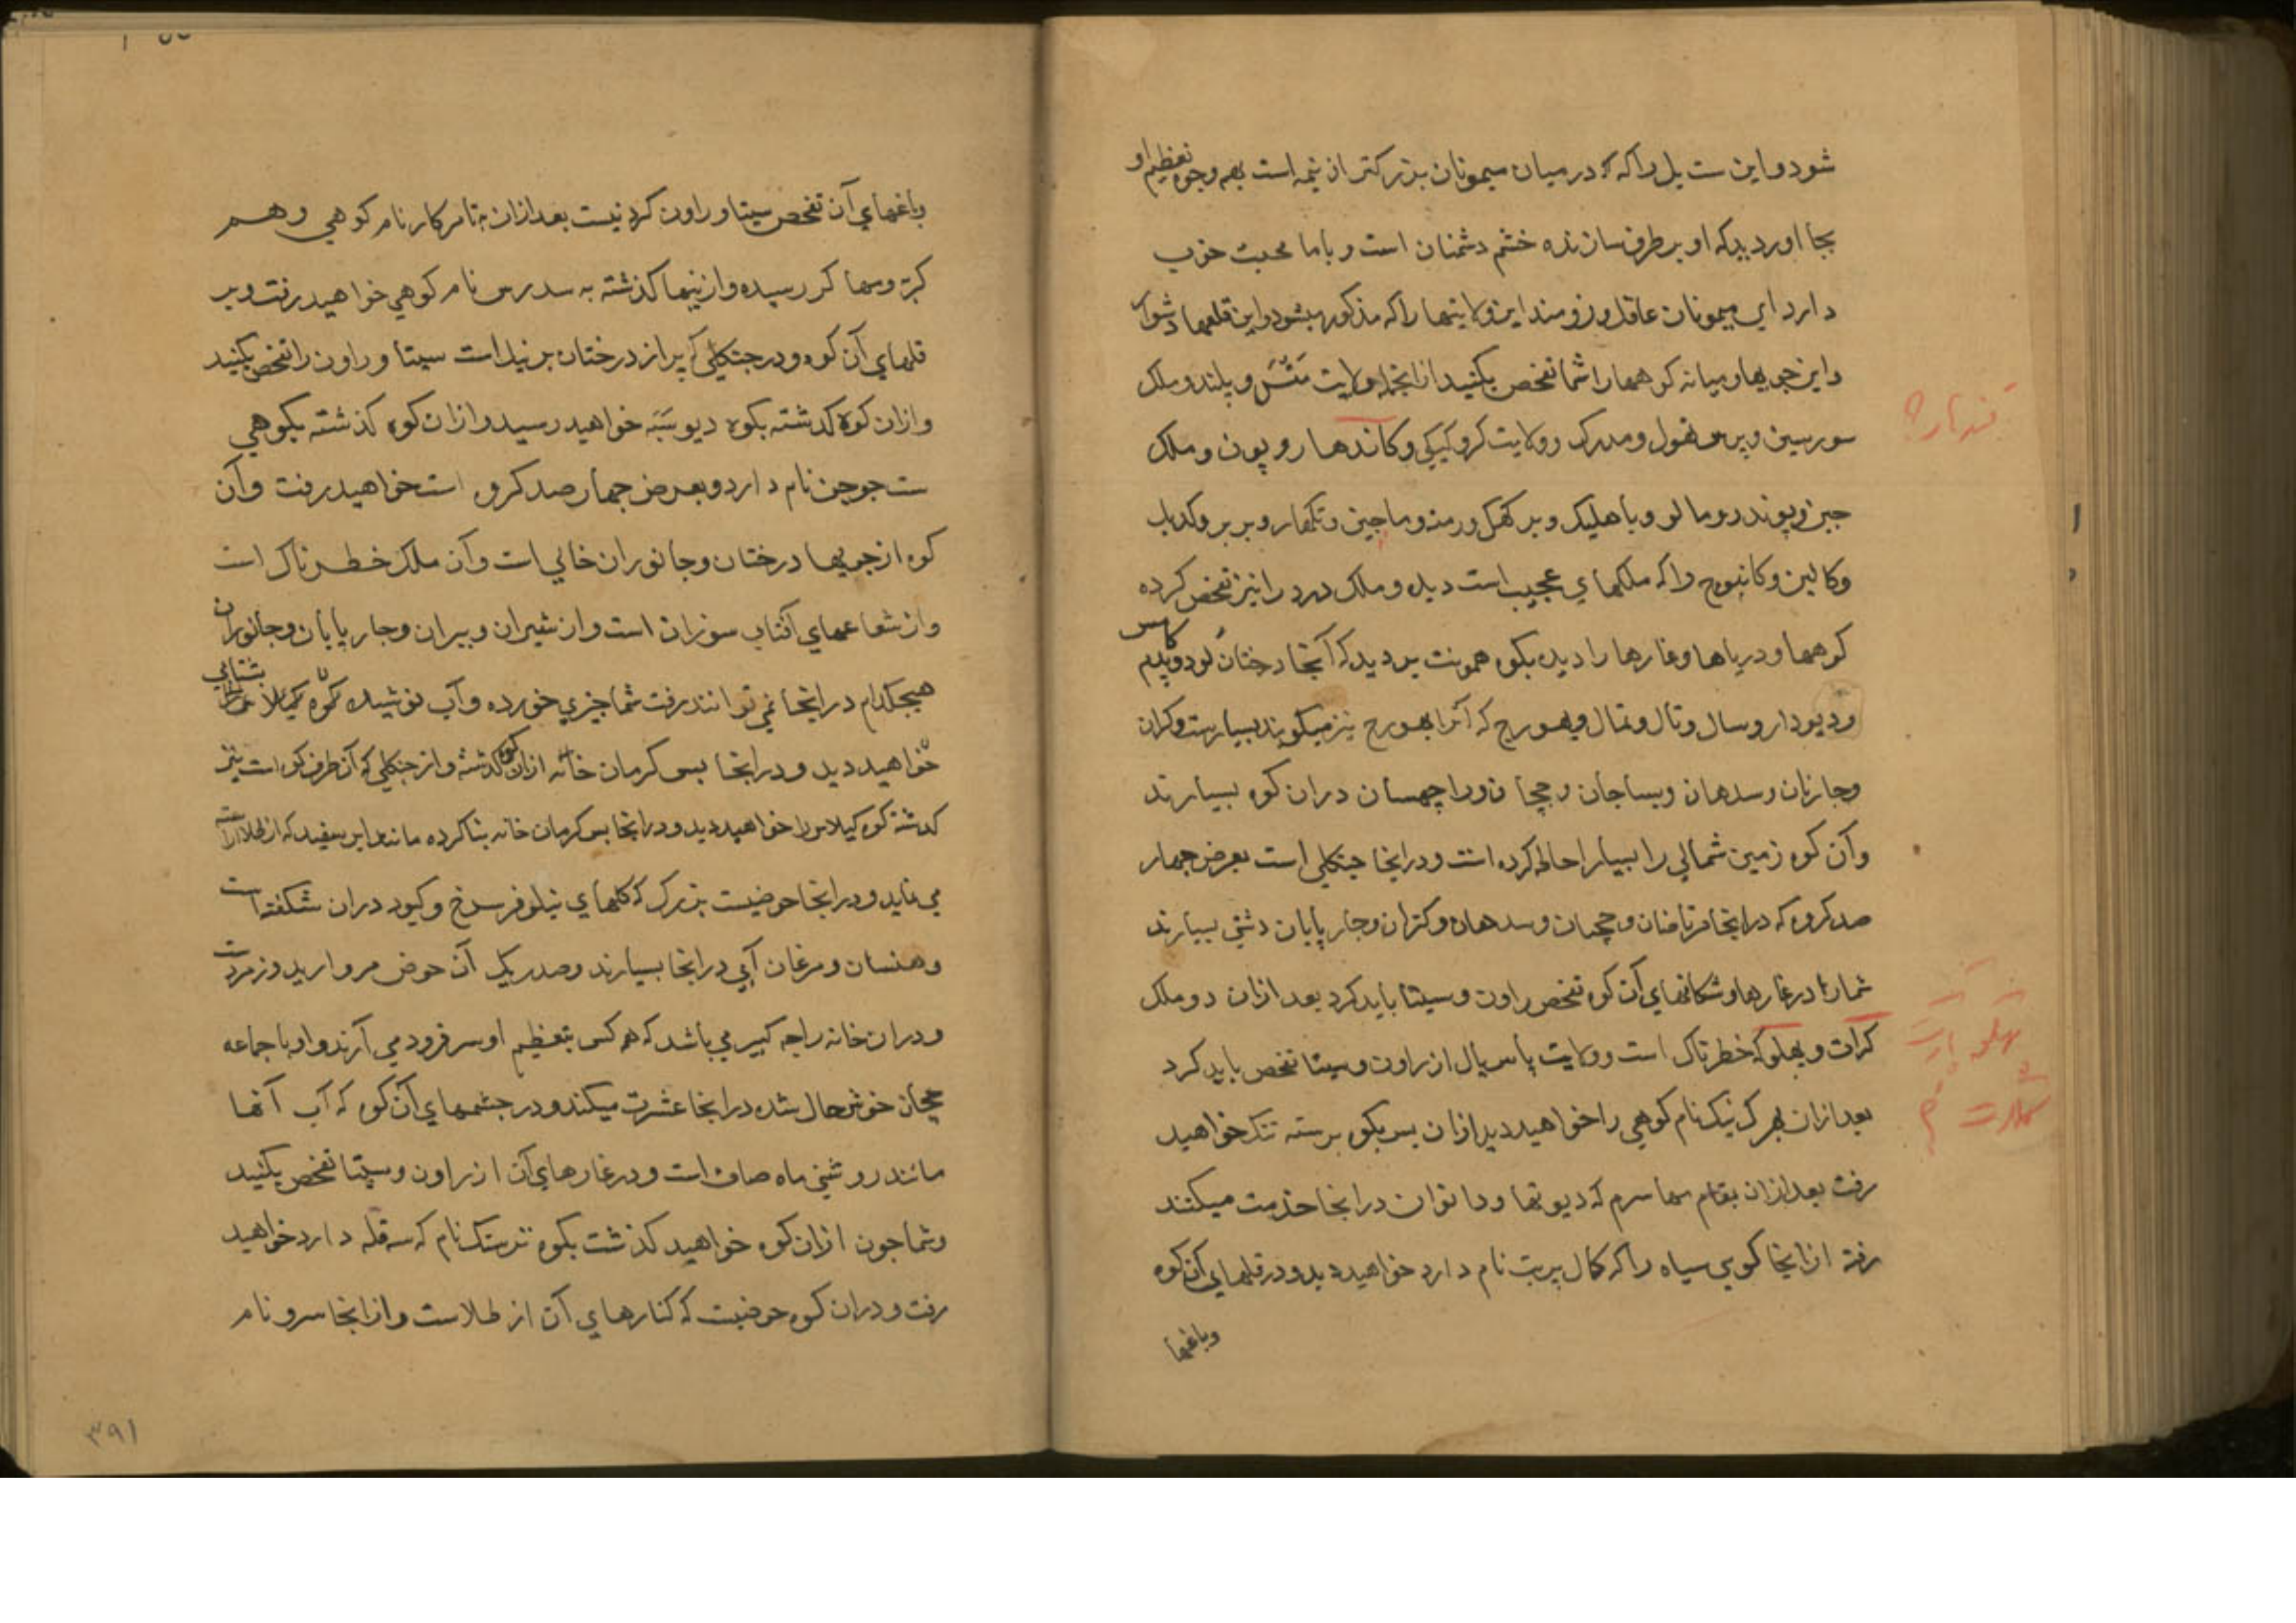 شود و این ست بل را که در میان میمونان بزرکتر از همه است بهمه وجوه تعظیم او
بجا اورد بدکه او برطرف سازنده خشم دشمنان است و با ما محبت خوب
دارد ای میمونان عاقل و زومند این ولایتها را که مذکور میشود و این قلعها دشوار
و این جویها و میانه کوهها را شما تفحص بکنید از انجمله ولایت و پلند و ملک
سورسین و ولایت کرو کیکی و کاندهار و پون و ملک
جین و پوندر و مالو و باهلیک و ماچین و تکهار و بربر
و کالین و کانبوج را که ملکهای عجیب است دیده و ملک درد را نیز تفحص کرده
کوهها و دریاها و غارها را دیده بکوه همونت بروید که آنجا درختان لود و پدم
و دیودار و سال و تال و تمال و بهوج که آنرا بهورج نیز میکویند بسیارست و کران
و جارنان و سدهان و بساجان و ججان و راچهسان دران کوه بسیارند
و آن کوه زمین شمالی را بسیار احاطه کرده است و درانجا جنکلی است بعرض جهار
صد کروه که درانجا و ججهان و سدهان و کنران و جارپایان دشتی بسیارند
شمارا در غارها و شکافهای آن کوه تفحص راون و سیتا باید کرد بعد ازان دو ملک
کرات و بهلو که خطرناک است و ولایت پاسیال از راون و سیتا تفحص باید کرد
بعد ازان نام کوهی را خواهید دید ازان پس بکوه خواهید
رفت بعد ازان بمقام سماسرم که دیوتها و دانوان درانجا خدمت میکنند
رفته ازانجا کوهی سیاه را که کال پربت نام دارد خواهید دید و در قلهای آن کوه
وباغها
قندهار؟
وباغهای آن تفحص سیتا و راون کردنیست بعد ازان نام کوهی و هم
رسیده و ازینها کذشته به سدرس نام کوهی خواهید رفت و بر
قلهای آن کوه و در جنکلی که پر از درختان است سیتا و راون را تفحص بکنید
و ازان کوه کذشته بکوه دیوسبه خواهید رسید و ازان کوه کذشته بکوهی
ست جوجن نام دارد و بعرض جهار صد کروه است خواهید رفت و آن
کوه از جویها درختان و جانوران خالی است و آن ملک خطرناک است
و از شعاعهای آفتاب سوزان است و از شیران و ببران و جارپایان و جانوران
هیجکدام درانجا نمی توانند رفت شما چیزی خورده و آب نوشیده کوه کیلاس را بشتابی
خواهید دید و درانجا بسوکرمان خانه ازان کوه کذشته و از جنکلی که آن طرف کوه است نیز
کذشته کوه کیلاس را خواهید دید و درانجا بسوکرمان خانه بنا کرده مانند ابر سفید که از طلا آراسته
می نماید و درانجا حوضیست بزرک که کلهای نیلوفر سرخ و کبود دران شکفته است
و هنسان و مرغان آبی درانجا بسیارند و صد ریک آن حوض مروارید و زمردست
و دران خانه راجه کبیر می باشد که هر کس بتعظیم او سر فرود می آرند و او با جماعه
ججهان خوش حال شده درانجا عشرت میکند و در جشمهای آن کوه که آب آنها
مانند روشنی ماه صاف است و در غارهای آن از راون و سیتا تفحص بکنید
و شما جون ازان کوه خواهید کذشت بکوه نام که سه قله دارد خواهید
رفت و دران کوه حوضیست که کنارهای آن از طلاست و ازانجا سرو نام
۳۹۱